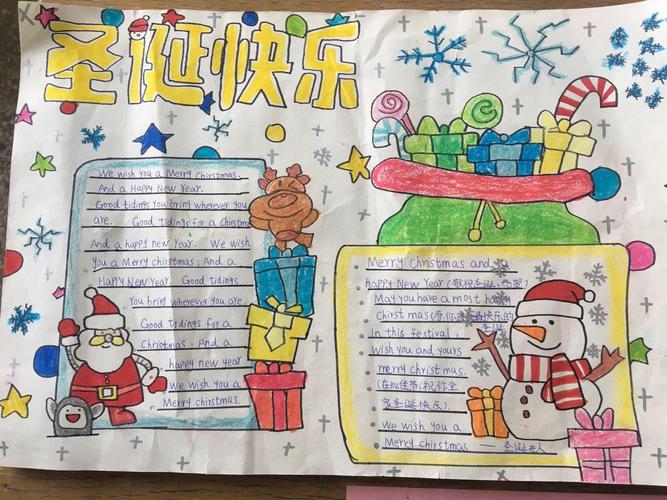 圣诞快乐
We wish you a Merry chirstmas.
And a HAPPY New Year.
Good tidings you bring wherever you
are. Good tidings for a Christmas
And a happy new Year. We wish
you a Merry chirstmas; And a
HAPPY New Year. Good tidings
You bring wherever you are
Good tidings for a
Christmas. And a
happy new year
We wish you a
Merry chirstmas.
Merry Christmas and a
happy New Year (敬祝圣诞,恭贺
May you have a most happy
Christmas (愿你 最快乐的
圣诞
In this festival,
wish you and yours
merry christmas.
(在此佳节,祝你全
家圣诞快乐).
We wish you a
Merry chirstmas — 圣诞老人